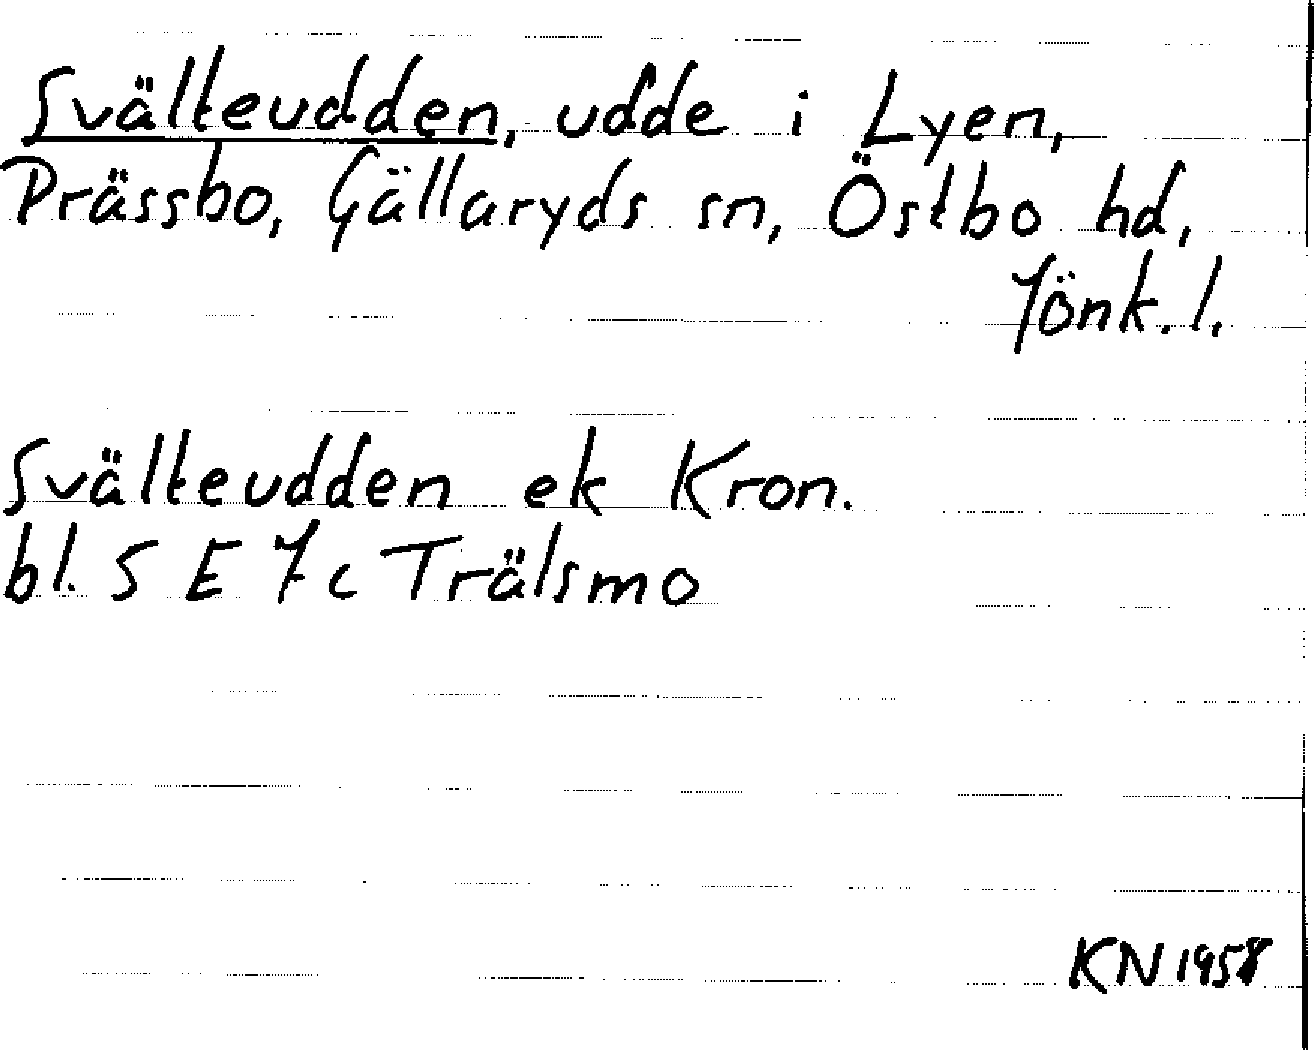 Svälteudden, udde i Lyen,
Prässbo, Gällaryds sn, Östbo hd,
Jönk. l.
Svälteudden ek Kron.
bl. 5 E 7 c Trälsmo
KN 1958